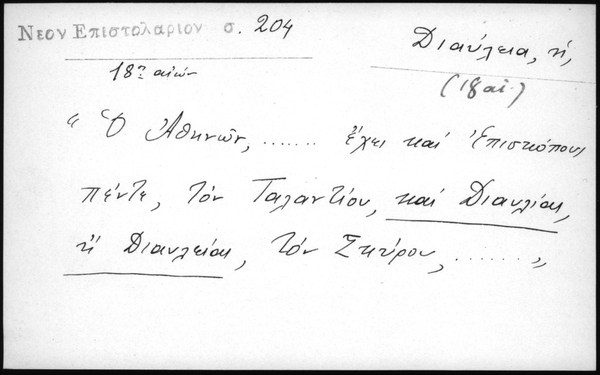 Νεον Επιστολαριον σ. 204
18ος αἰών
Διαύλεια, ἡ,
(18 αἰ.)
“ Ὁ Ἀθηνῶν, ...... ἔχει καί Ἐπισκόπους
πέντε, τόν Ταλαντίου, καί Διαυλίας,
ἤ Διαυλείας, τόν Σκύρου, ...... „